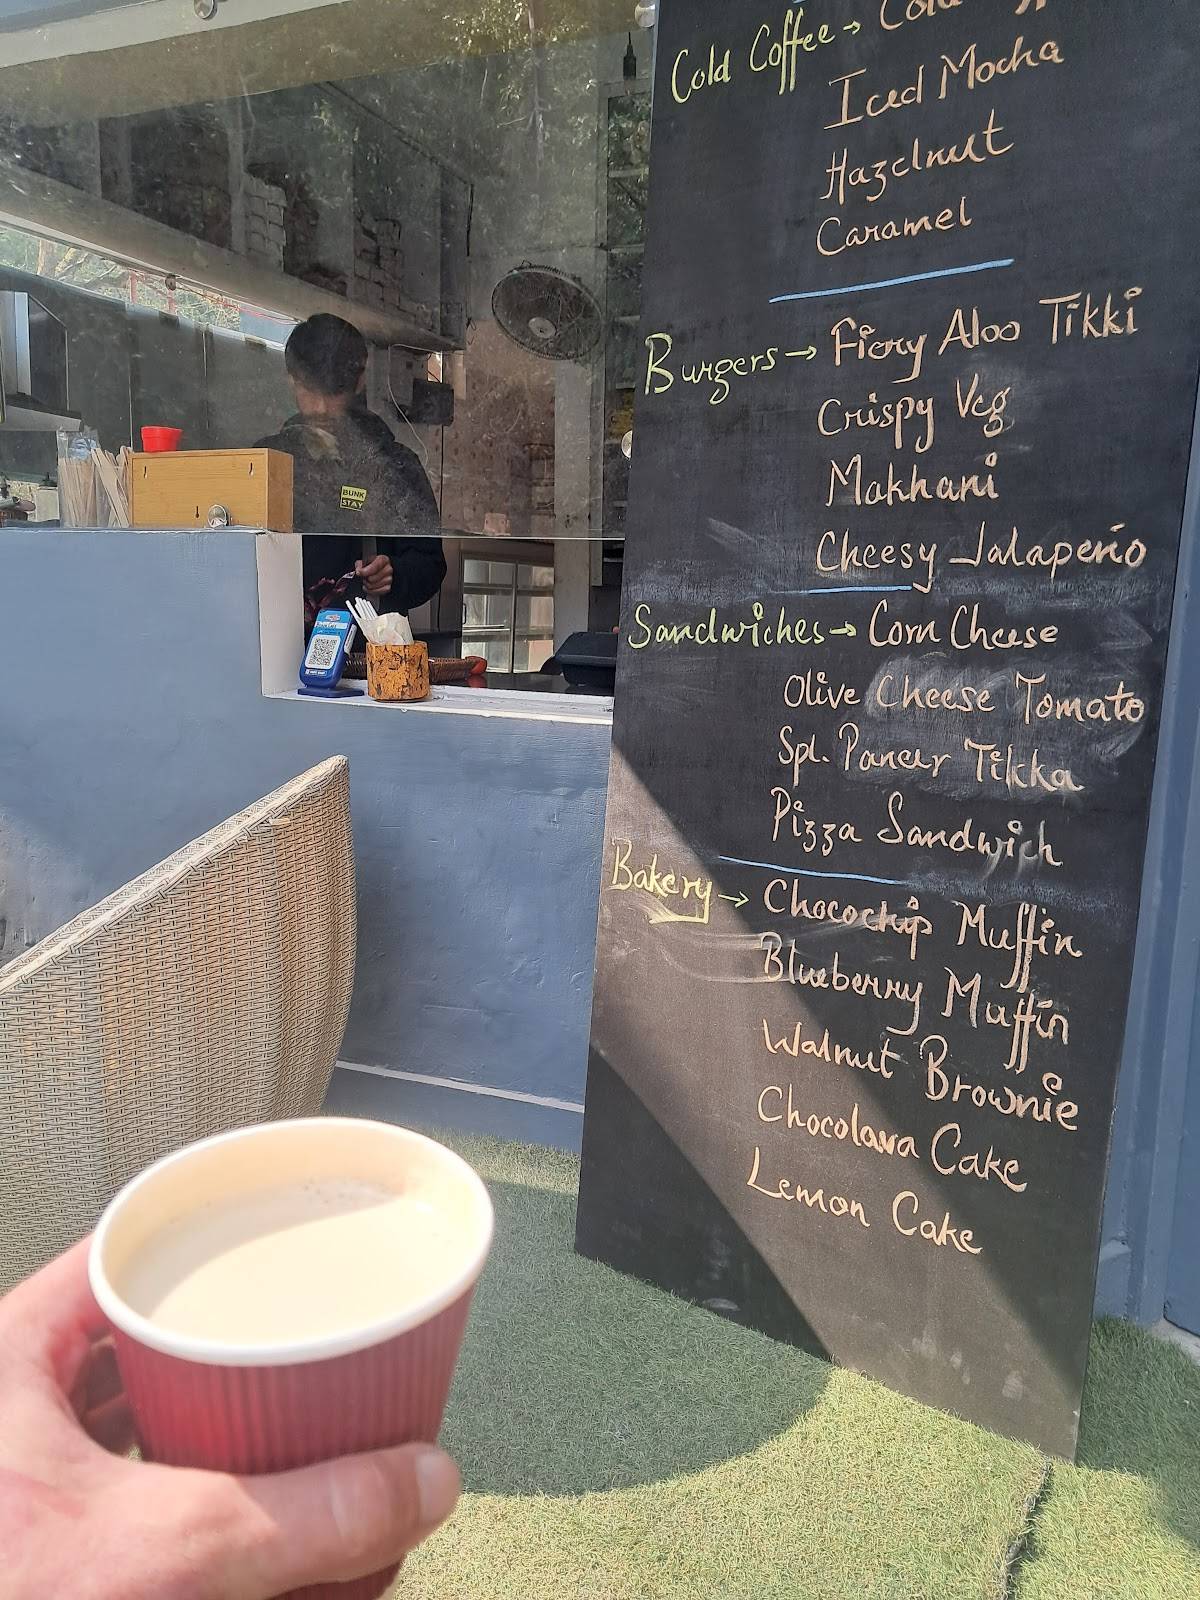 Cold Coffee → Cold
Iced Mocha
Hazelnut
Caramel
Burgers → Fiery Aloo Tikki
Crispy Veg
Makhani
Cheesy Jalapeno
Sandwiches → Corn Cheese
Olive Cheese Tomato
Spl. Paneer Tikka
Pizza Sandwich
Bakery → Chocochip Muffin
Blueberry Muffin
Walnut Brownie
Chocolava Cake
Lemon Cake
BUNK
STAY